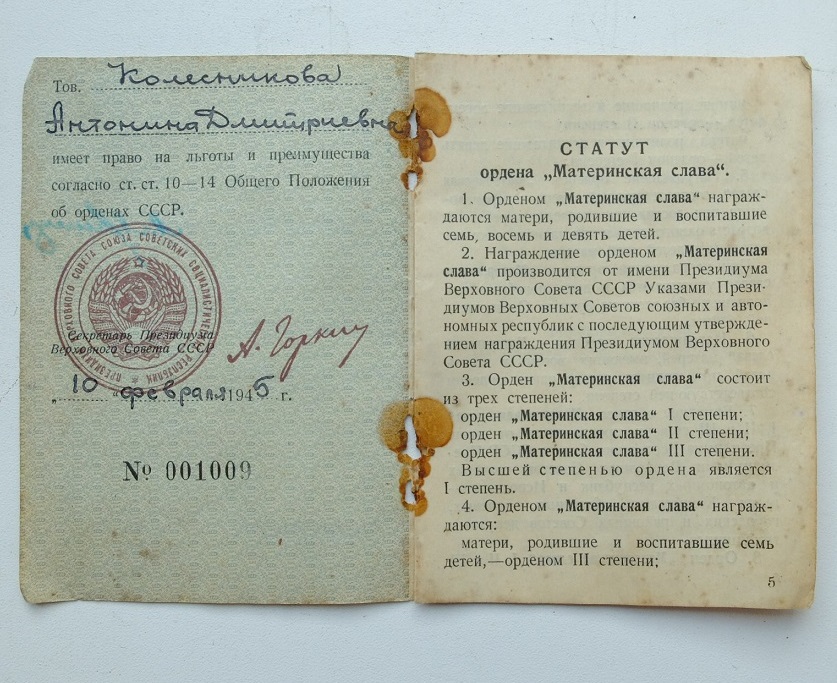 Тов. Колесникова
Антонина Дмитриевна
имеет право на льготы и преимущества
согласно ст. ст. 10—14 Общего Положения
об орденах СССР.
Секретарь Президиума
Верховного Совета СССР
А. Горкин
„10“ февраля 1945 г.
№ 001009
СТАТУТ
ордена „Материнская слава“.
1. Орденом „Материнская слава“ награж-
даются матери, родившие и воспитавшие
семь, восемь и девять детей.
2. Награждение орденом „Материнская
слава“ производится от имени Президиума
Верховного Совета СССР Указами Прези-
диумов Верховных Советов союзных и авто-
номных республик с последующим утвержде-
нием награждения Президиумом Верховного
Совета СССР.
3. Орден „Материнская слава“ состоит
из трех степеней:
орден „Материнская слава“ I степени;
орден „Материнская слава“ II степени;
орден „Материнская слава“ III степени.
Высшей степенью ордена является
I степень.
4. Орденом „Материнская слава“ награж-
даются:
матери, родившие и воспитавшие семь
детей,—орденом III степени;
5